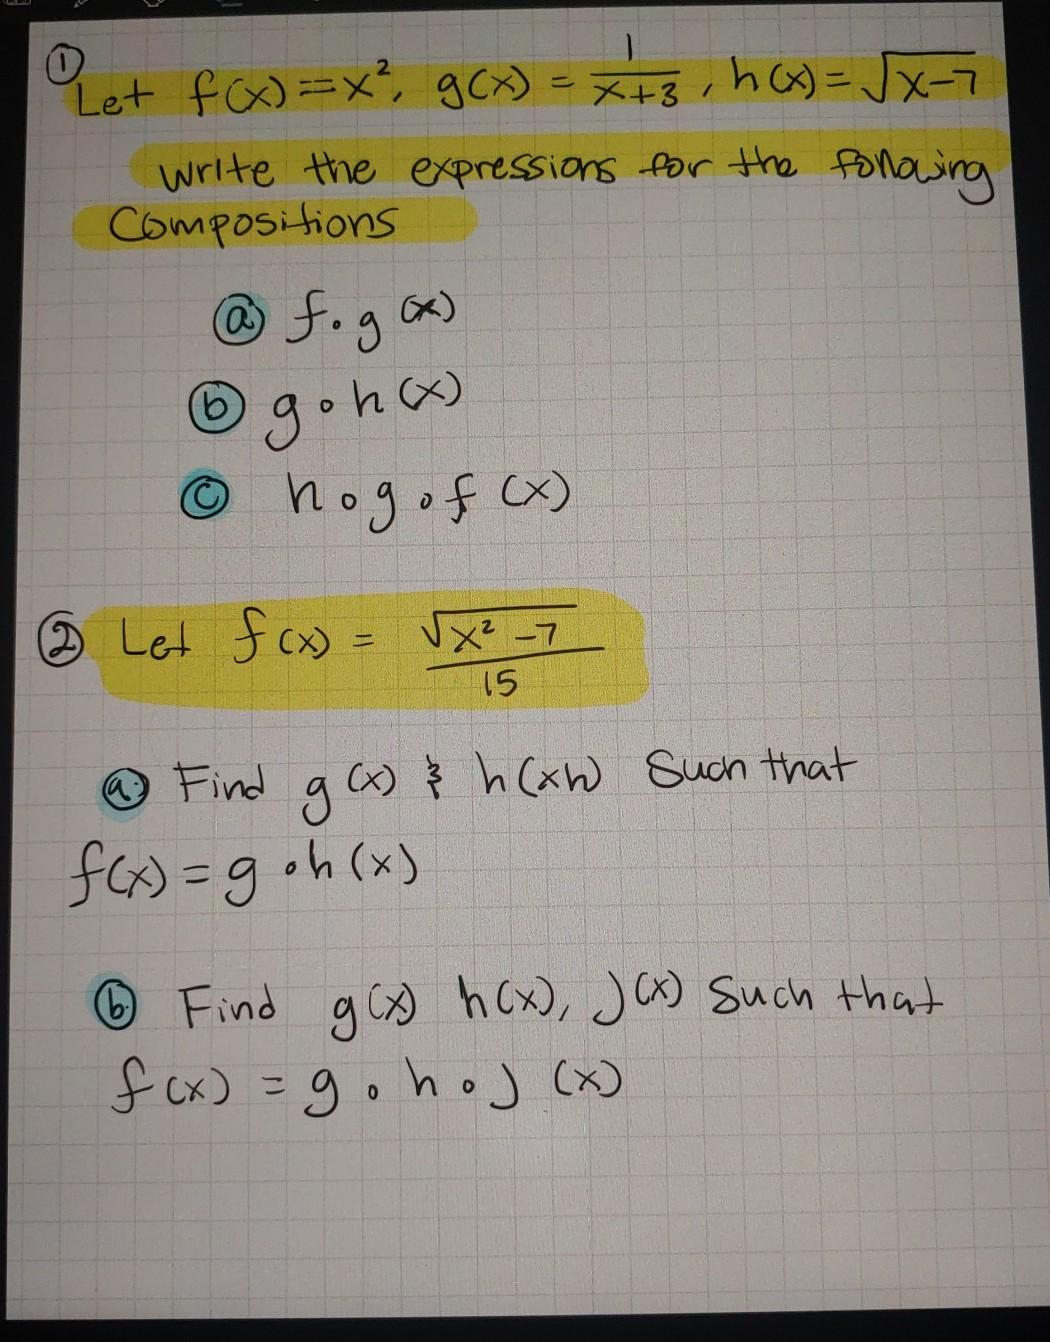 ① Let f(x) = x², g(x) = 1/(x+3), h(x) = √(x-7)
write the expressions for the following
Compositions
ⓐ f∘g (x)
ⓑ g∘h (x)
ⓒ h∘g∘f (x)
② Let f(x) = √(x² -7)/15
ⓐ Find g(x) & h(xh) Such that
f(x) = g∘h(x)
ⓑ Find g(x) h(x), j(x) Such that
f(x) = g∘h∘j (x)